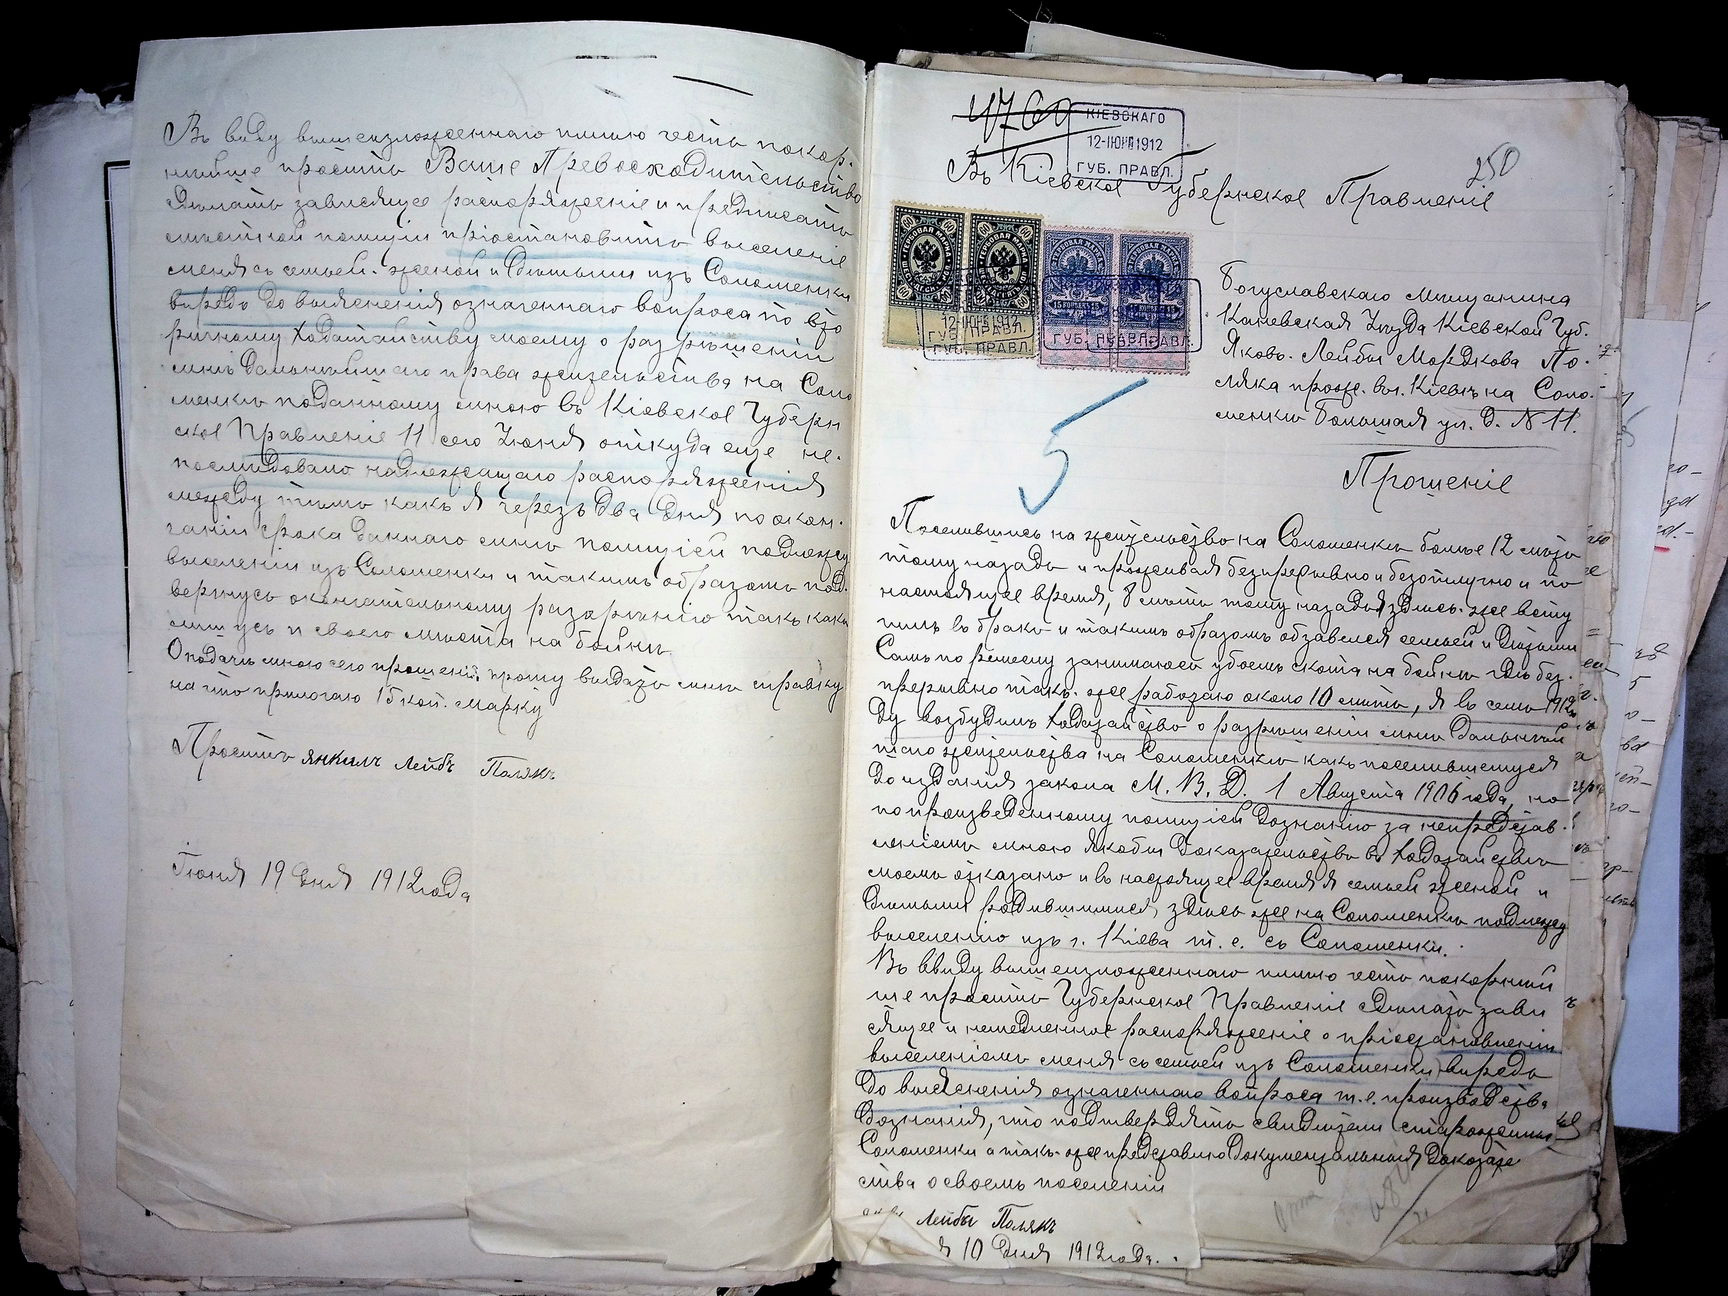 Въ виду вышеизложеннаго имѣю честь покор-
нѣйше просить Ваше Превосходительство
сдѣлать зависящее распоряженіе и предписать
мѣстной полиціи пріостановить выселеніе
меня съ семьей-женой и дѣтьми изъ Соломенки
впредь до выясненія означеннаго вопроса по вто
ричному ходатайству моему о разрѣшеніи
мнѣ дальнѣйшаго права жительства на Соло
менкѣ поданному мною въ Кіевское Губерн
ское Правленіе 11 сего Іюня откуда еще не-
послѣдовало надлежащаго распоряженія
между тѣмъ какъ я черезъ два дня по окон-
чаніи срока даннаго мнѣ полиціей подлежу
выселенію изъ Соломенки и такимъ образомъ под
вергнусь окончательному разоренію такъ какъ
лишусь и своего мѣста на бойнѣ.
О подачѣ мною сего прошенія, прошу выдать мнѣ справку
на что прилогаю 15 коп. марку
Проситъ Янкилъ Лейбъ Полякъ
Іюня 19 дня 1912 года
4769
КІЕВСКАГО
12-ІЮН 1912
ГУБ. ПРАВЛ.
250
Въ Кіевское Губернское Правленіе
Богуславскаго мѣщанина
Каневскаго Уѣзда Кіевской Губ.
Яковъ-Лейбы Мордкова По-
ляка прож. въ г. Кіевѣ на Соло-
менкѣ Большая ул. д. № 11.
12-ІЮН 1912
ГУБ. ПРАВЛ.
ГУБ. ПРАВЛ.
5
Прошеніе
Поселившись на жительство на Соломенкѣ болѣе 12 лѣтъ
тому назадъ и проживая безпрерывно и безотлучно и по
настоящее время, 8 лѣтъ тому назадъ я здѣсь-же всту
пилъ въ бракъ и такимъ образомъ обзавелся семьей и дѣтьми
Самъ по ремеслу занимаюсь убоемъ скота на бойнѣ гдѣ без-
прерывно такъ-же работаю около 10 лѣтъ, я въ семъ 1912 го
ду возбудилъ ходатайство о разрѣшеніи мнѣ дальнѣй
шаго жительства на Соломенкѣ какъ поселившемуся
до изданія закона М. В. Д. 1 Августа 1906 года, но
по произведенному полиціей дознанію за непредстав-
леніемъ мною якобы доказательствъ въ ходатайствѣ
моемъ отказано и въ настоящее время я семьей женой и
дѣтьми родившимися здѣсь же на Соломенкѣ подлежу
выселенію изъ г. Кіева т. е. съ Соломенки.
Въ виду вышеизложеннаго имѣю честь покорнѣй
ше просить Губернское Правленіе сдѣлать зави
сящее и немедленное распоряженіе о пріостановленіи
выселеніемъ меня съ семьей изъ Соломенки впредь
до выясненія означеннаго вопроса т.е. производства
дознанія, что подтвердятъ свидѣтели старожилы
Соломенки а такъ-же представлю документальныя доказате
льства о своемъ поселеніи
Лейбы Полякъ
10 дня 1912 года.